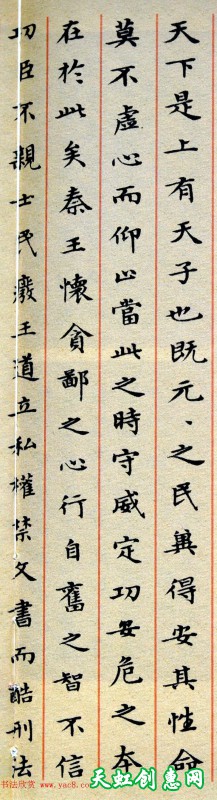 天下是上有天子也既元、之民冀得安其性命
莫不虛心而仰上當此之時守威定功安危之本
在於此矣秦王懷貪鄙之心行自奮之智不信
功臣不親士民廢王道立私權禁文書而酷刑法
书法欣赏 www.yac8.com
天虹创惠网